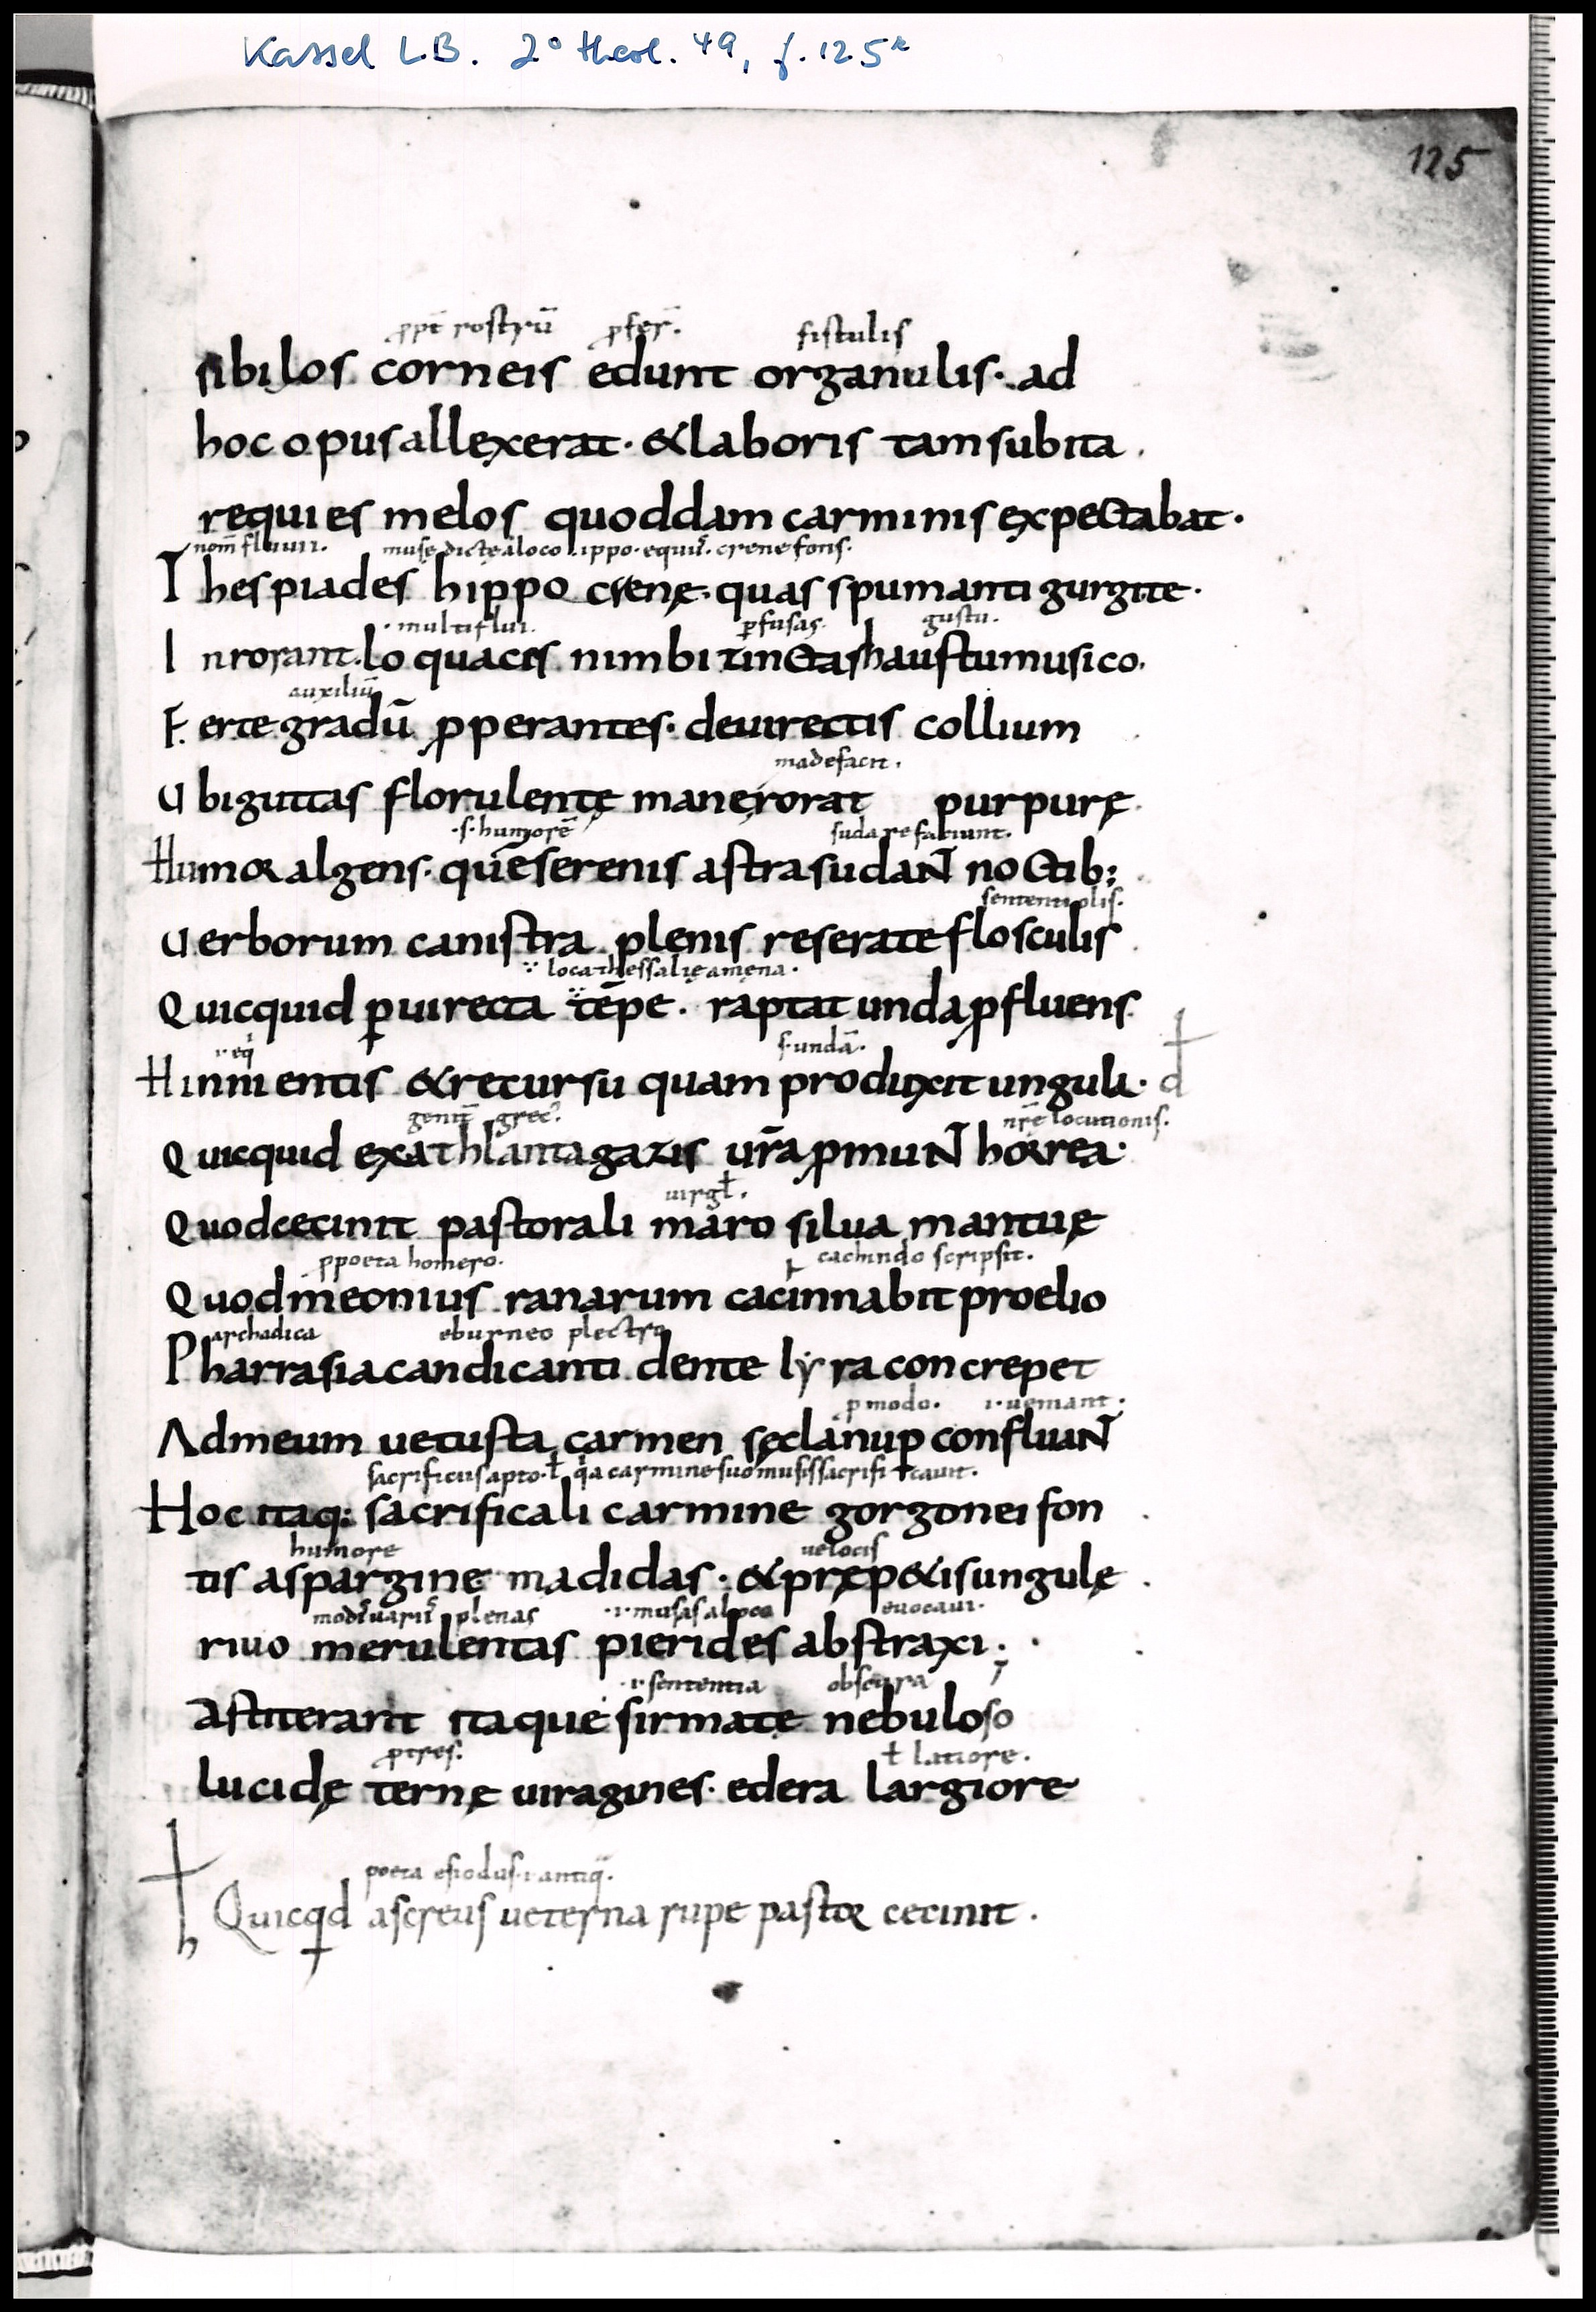 Kassel LB. 2° theol. 49, f. 125r
125
ppt̄ rostrū pfer̄. fistulis
sibilos corneis edunt organulis· ad
hoc opus allexerat· &laboris tam subita.
requies melos quoddam carminis expectabat·
nom̄ fluuii. musę dictę a loco. ippo· equus̄. crene fons·
Thespiades hippo crenę· quas spumanti gurgite·
·multiflui. ꝑfusas· gustu.
Inrorant. loquacis nimbi tinctas haustu musico.
auxiliū
Ferte gradū ꝓperantes· de uirectis collium
madefacit.
Ubi guttas florulentę mane rorat purpurę.
·s·humorē sudare faciunt.
Humor algens· quē serenis astra sudaNT noctib;
sententiolis.
Uerborum canistra plenis reserate flosculis
loca thessalię amęna.
Quicquid ꝑ uirecta tēpe· raptat unda ꝓfluens
·i·eq̄ s·undā.
Hinnientis &recursu quam produxit ungula· d
genit̄ grec̄. nr̄ę locutionis.
Quicquid exa thlanta gazis ur̄a ꝓmuNT horrea·
uirgł.
Quod cecinit pastorali maro silua mantuę
ꝓpoeta homero. cachindo scripsit.
Quod meonius ranarum cacinnabit proelio
archadica eburneo plectro
Pharrasia candicanti dente lẏra concrepet
ꝓ modo. ·i·ueniant·
Ad meum uetusta carmen sęcla nup confluaNT
sacrificiis apto· ł q̄a carmine suo musis sacrificauit.
Hoc itaq; sacrificali carmine gorgonei fon
humore uelocis
tis aspargine madidas· &pręp&is ungulę
plenas ·i·musas a loco euocaui·
riuo merulentas pierides abstraxi;·
·i·sententia obscura
Astiterant itaque sirmate nebuloso
ꝓ tres. ł latiore.
lucidę ternę uiragines· edera largiore
poeta esiodus· i antiq̄.
h Quicq̄d ascreus ueterna rupe pastor cecinit.